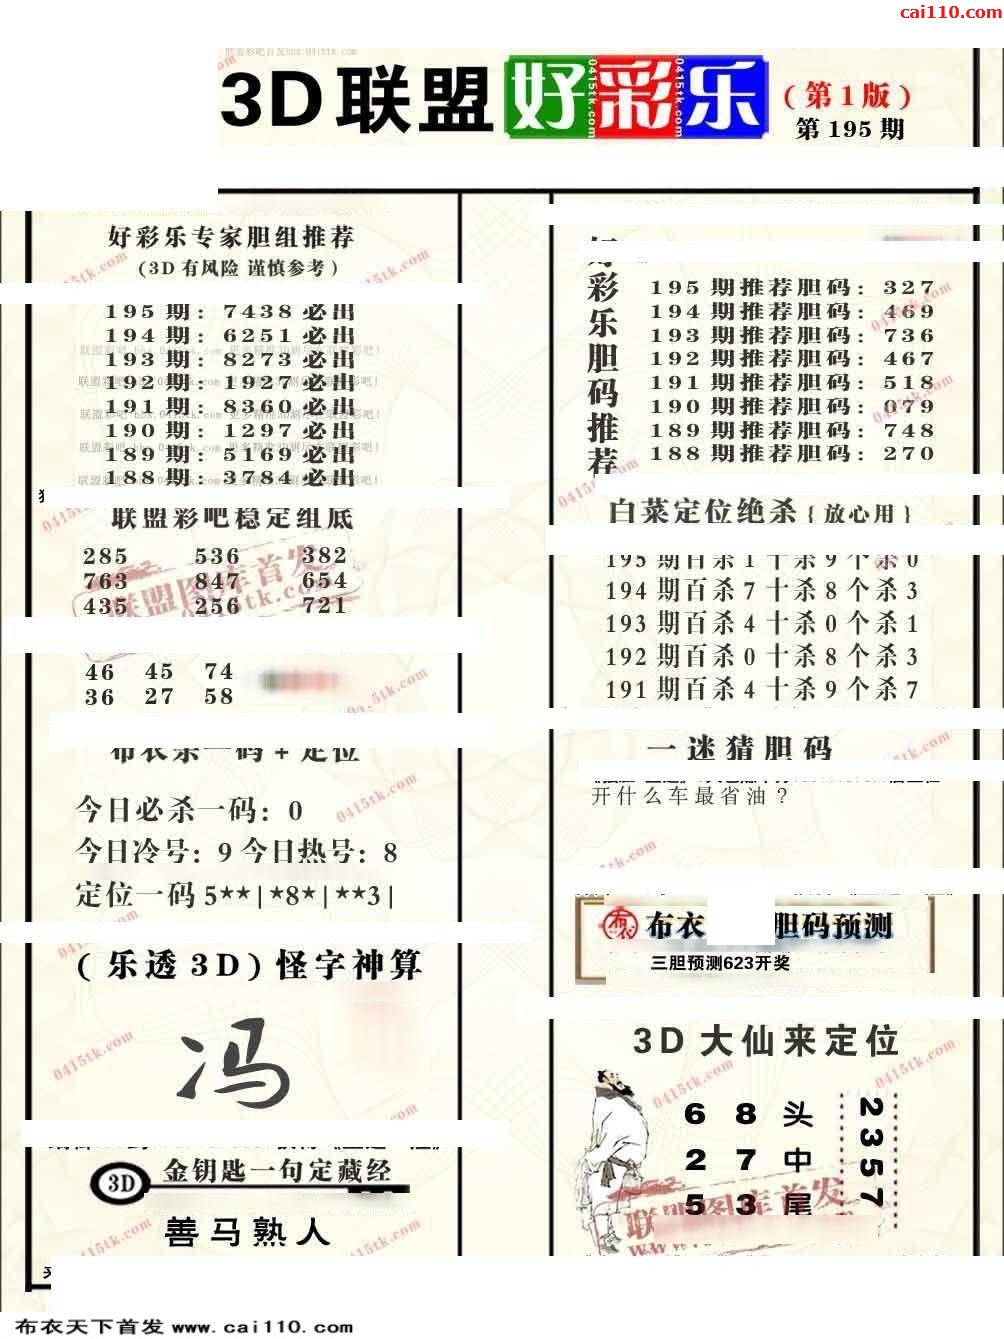 cai110.com
3D联盟 好彩乐
(第1版)
第195期
好彩乐专家胆组推荐
(3D有风险 谨慎参考)
195期: 7438必出
194期: 6251必出
193期: 8273必出
192期: 1927必出
191期: 8360必出
190期: 1297必出
189期: 5169必出
188期: 3784必出
联盟彩吧稳定组底
285 536 382
763 847 654
435 256 721
46 45 74
36 27 58
布衣杀一码+定位
今日必杀一码: 0
今日冷号: 9 今日热号: 8
定位一码5**|*8*|**3|
(乐透3D)怪字神算
冯
3D 金钥匙一句定藏经
善马熟人
好彩乐胆码推荐
195期推荐胆码: 327
194期推荐胆码: 469
193期推荐胆码: 736
192期推荐胆码: 467
191期推荐胆码: 518
190期推荐胆码: 079
189期推荐胆码: 748
188期推荐胆码: 270
白菜定位绝杀{放心用}
195期百杀1十杀9个杀0
194期百杀7十杀8个杀3
193期百杀4十杀0个杀1
192期百杀0十杀8个杀3
191期百杀4十杀9个杀7
一迷猜胆码
开什么车最省油?
布衣 胆码预测
三胆预测623开奖
3D大仙来定位
6 8 头
2 7 中
5 3 尾
2357
联盟图库首发
0415tk.com
布衣天下首发 www.cai110.com